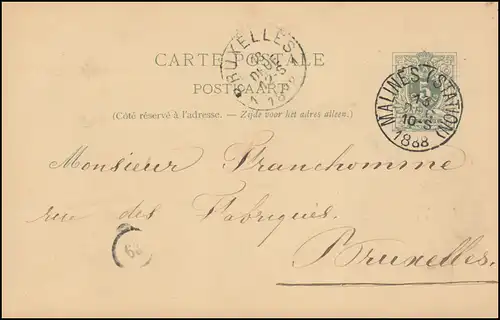 CARTE POSTALE
POSTKAART
(Côté réservé à l'adresse. — Zijde voor het adres alleen.)
BRUXELLES 1
1888
5
MALINES (STATION)
13
10-S
1888
Monsieur Franchomme
rue des Fabriques.
Bruxelles.